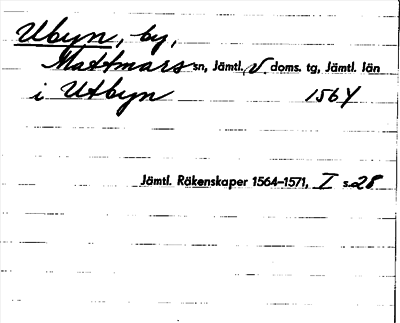 Ubyn, by,
Mattmars sn, Jämtl. V. doms. tg, Jämtl. län
i Utbyn 1564
Jämtl. Räkenskaper 1564–1571, I s. 28